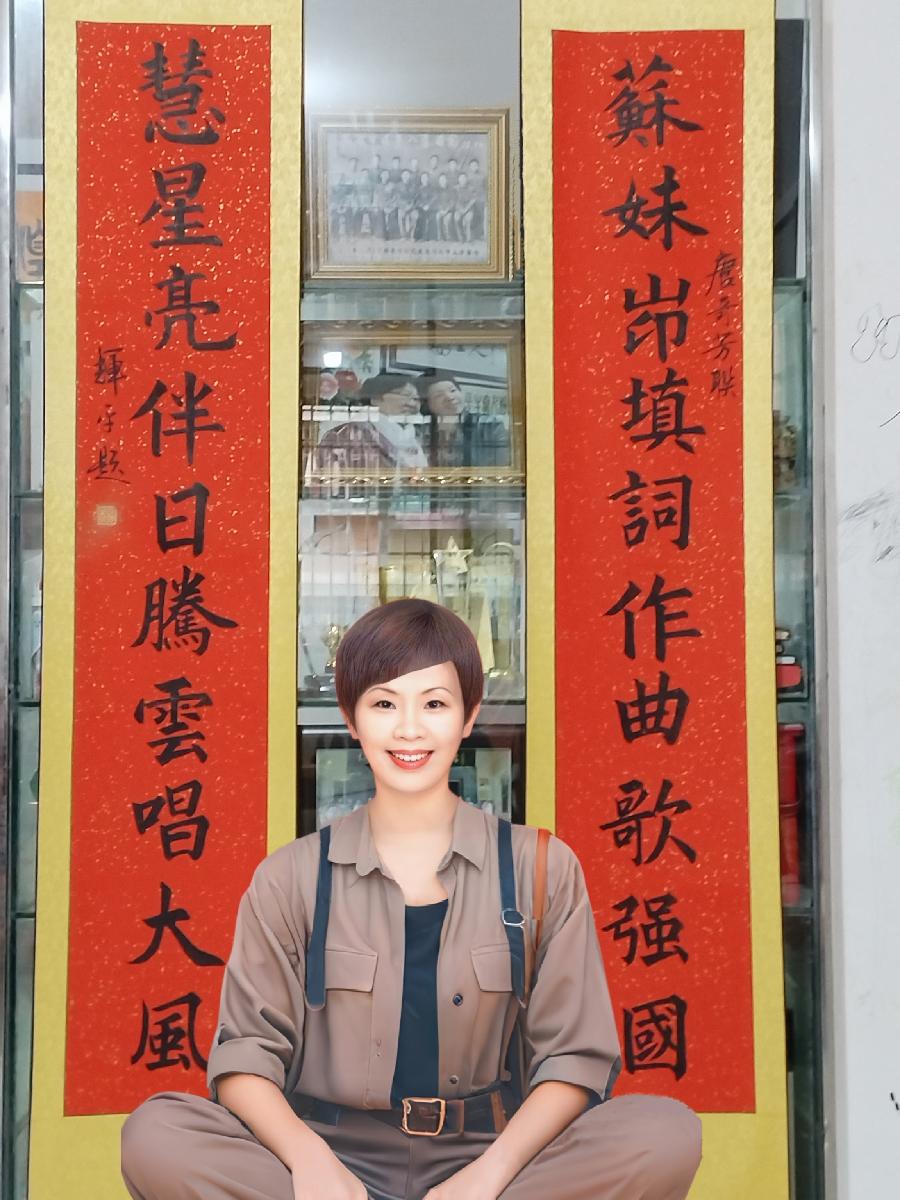 蘇妹峁填詞作曲歌强國
唐奇芳联
慧星亮伴日騰雲唱大風
輝平题